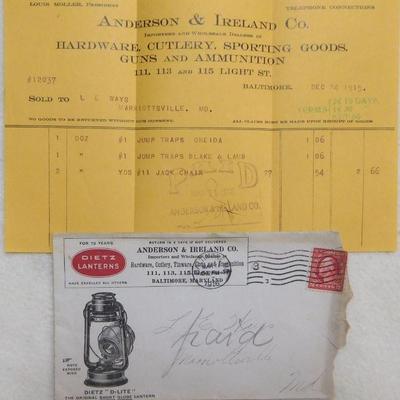 LOUIS MOLLER, PRESIDENT TELEPHONE CONNECTIONS
ANDERSON & IRELAND CO.
IMPORTERS AND WHOLESALE DEALERS IN
HARDWARE, CUTLERY, SPORTING GOODS,
GUNS AND AMMUNITION
111, 113 AND 115 LIGHT ST.
#12037 BALTIMORE, DEC 1915.
SOLD TO L E WAYS
MARRIOTTSVILLE, MD.
NO GOODS TO BE RETURNED WITHOUT OUR CONSENT. ALL CLAIMS MUST BE MADE UPON RECEIPT OF GOODS.
1 DOZ #1 JUMP TRAPS ONEIDA 1 06
1 " #1 JUMP TRAPS BLAKE & LAMB 1 06
2 YDS #11 JACK CHAIN 27 54 2 66
PAID
ANDERSON & IRELAND CO.
FOR 75 YEARS
DIETZ
LANTERNS
HAVE EXCELLED ALL OTHERS
RETURN IN 5 DAYS IF NOT DELIVERED
ANDERSON & IRELAND CO.
Importers and Wholesale Dealers in
Hardware, Cutlery, Tinware, Guns and Ammunition
111, 113, 115
BALTIMORE, MARYLAND
1916
3
paid
Md
NOTE
EXPOSED
WICK
DIETZ "D-LITE"
THE ORIGINAL SHORT GLOBE LANTERN